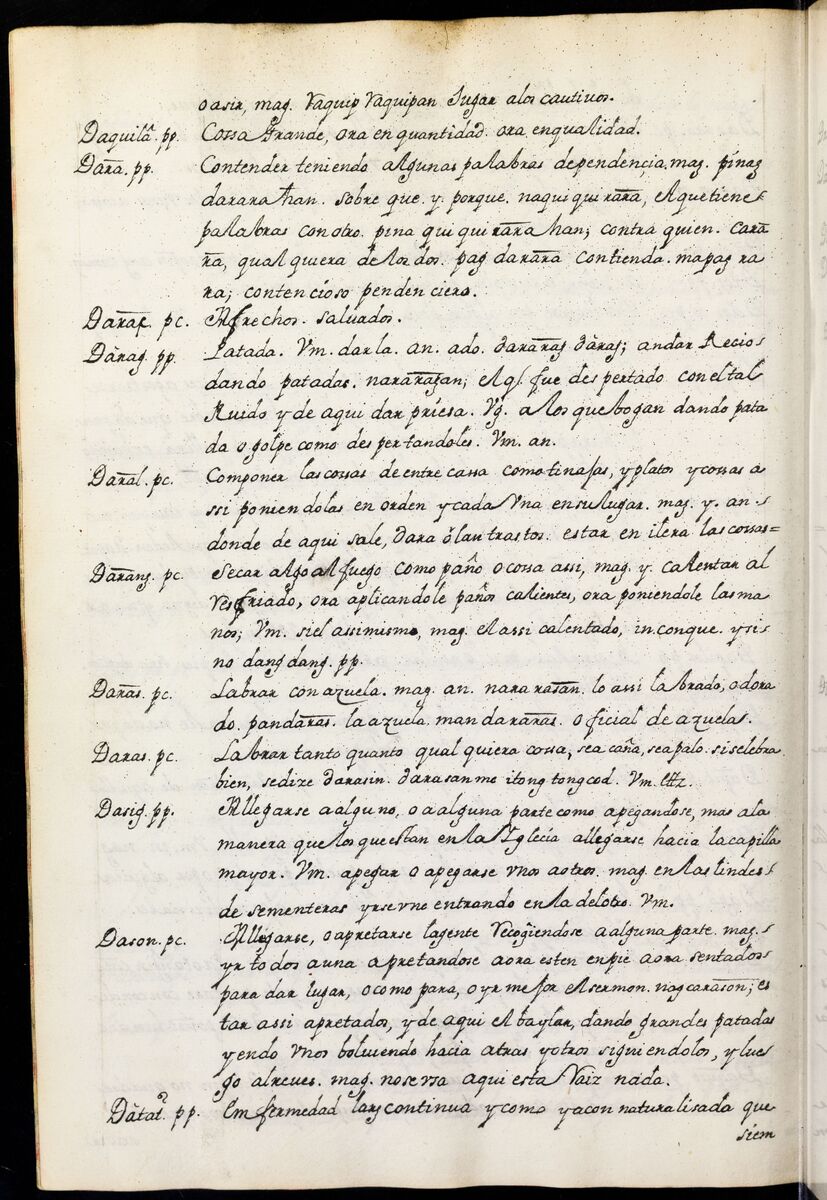 o asir, mag. Vaquip Vaquipan Lugar a los cautivos.
Daquilã. pp. Cossa Grande, ora en quantidad. ora en qualidad.
Dara. pp. Contender teniendo algunas palabras de pendençia. mag. pinag
dararahan. sobre que. y. porque. naquiquirara, el que tiene
palabras con otro. pina qui quirara han; contra quien. cara
ra, qual quiera de los dos. pag darara contienda. mapag ra
ra; contencioso pendenciero.
Darac. pc. Afrechos. salvados.
Dàrag. pp. Patada. Vm. darla. an. ado. dararag dàrag; andar Recio
dando patadas. nararagan; el ql. fue despertado con el tal
Ruido y de aqui dar priesa. Vg. a los que bogan dando pata
da o golpe como des pertandoles. Vm. an.
Daral. pc. Componer las cossas de entre cassa como tinajas, y platos y cossas a
ssi poniendolas en orden y cada Vna en su lugar. mag. y. an.
donde de aqui sale, dara òlan trastos. estar en ilera las cossas=
Darang. pc. Secar algo al fuego como paño o cossa assi, mag. y. calentar al
resfriado, ora aplicandole paños calientes, ora poniendole las ma
nos; Vm. si el assimismo, mag. el assi calentado, in. conque. y si
no dangdang. pp.
Daras. pc. Labrar con azuela. mag. an. nararasan. lo assi labrado, o dora
do. pandaras. la azuela. mandararas. oficial de azuelas.
Daras. pc. Labrar tanto quanto qual quiera cossa, sea caña, sea palo. si se lebra
bien, se dize darasin. darasan mo itong tongcod. Vm. ettz.
Dasig. pp. Allegarse a alguno, o a alguna parte como apegandose, mas a la
manera que los que estan en la Iglecia allegarse hacia la capilla
mayor. Vm. apegar o apegarse vnos a otros. mag. en las lindes
de sementeras yrse vne entrando en la del otro. Vm.
Dason. pc. Allegarse, o apretarse la gente recogiendose a alguna parte. mag.
yr todos a una apretandose aora esten en pie aora sentados
para dar lugar, o como para, o yr mejor el sermon. nag carason; es
tar assi apretados, y de aqui el baylar, dando grandes patadas
yendo vnos bolviendo hacia atras y otros siguiendolos, y lue
go al reves. mag. no se vsa aqui esta Raiz nada.
Dàtat. pp. Emfermedad larg continua y como ya con naturalisada que
siem